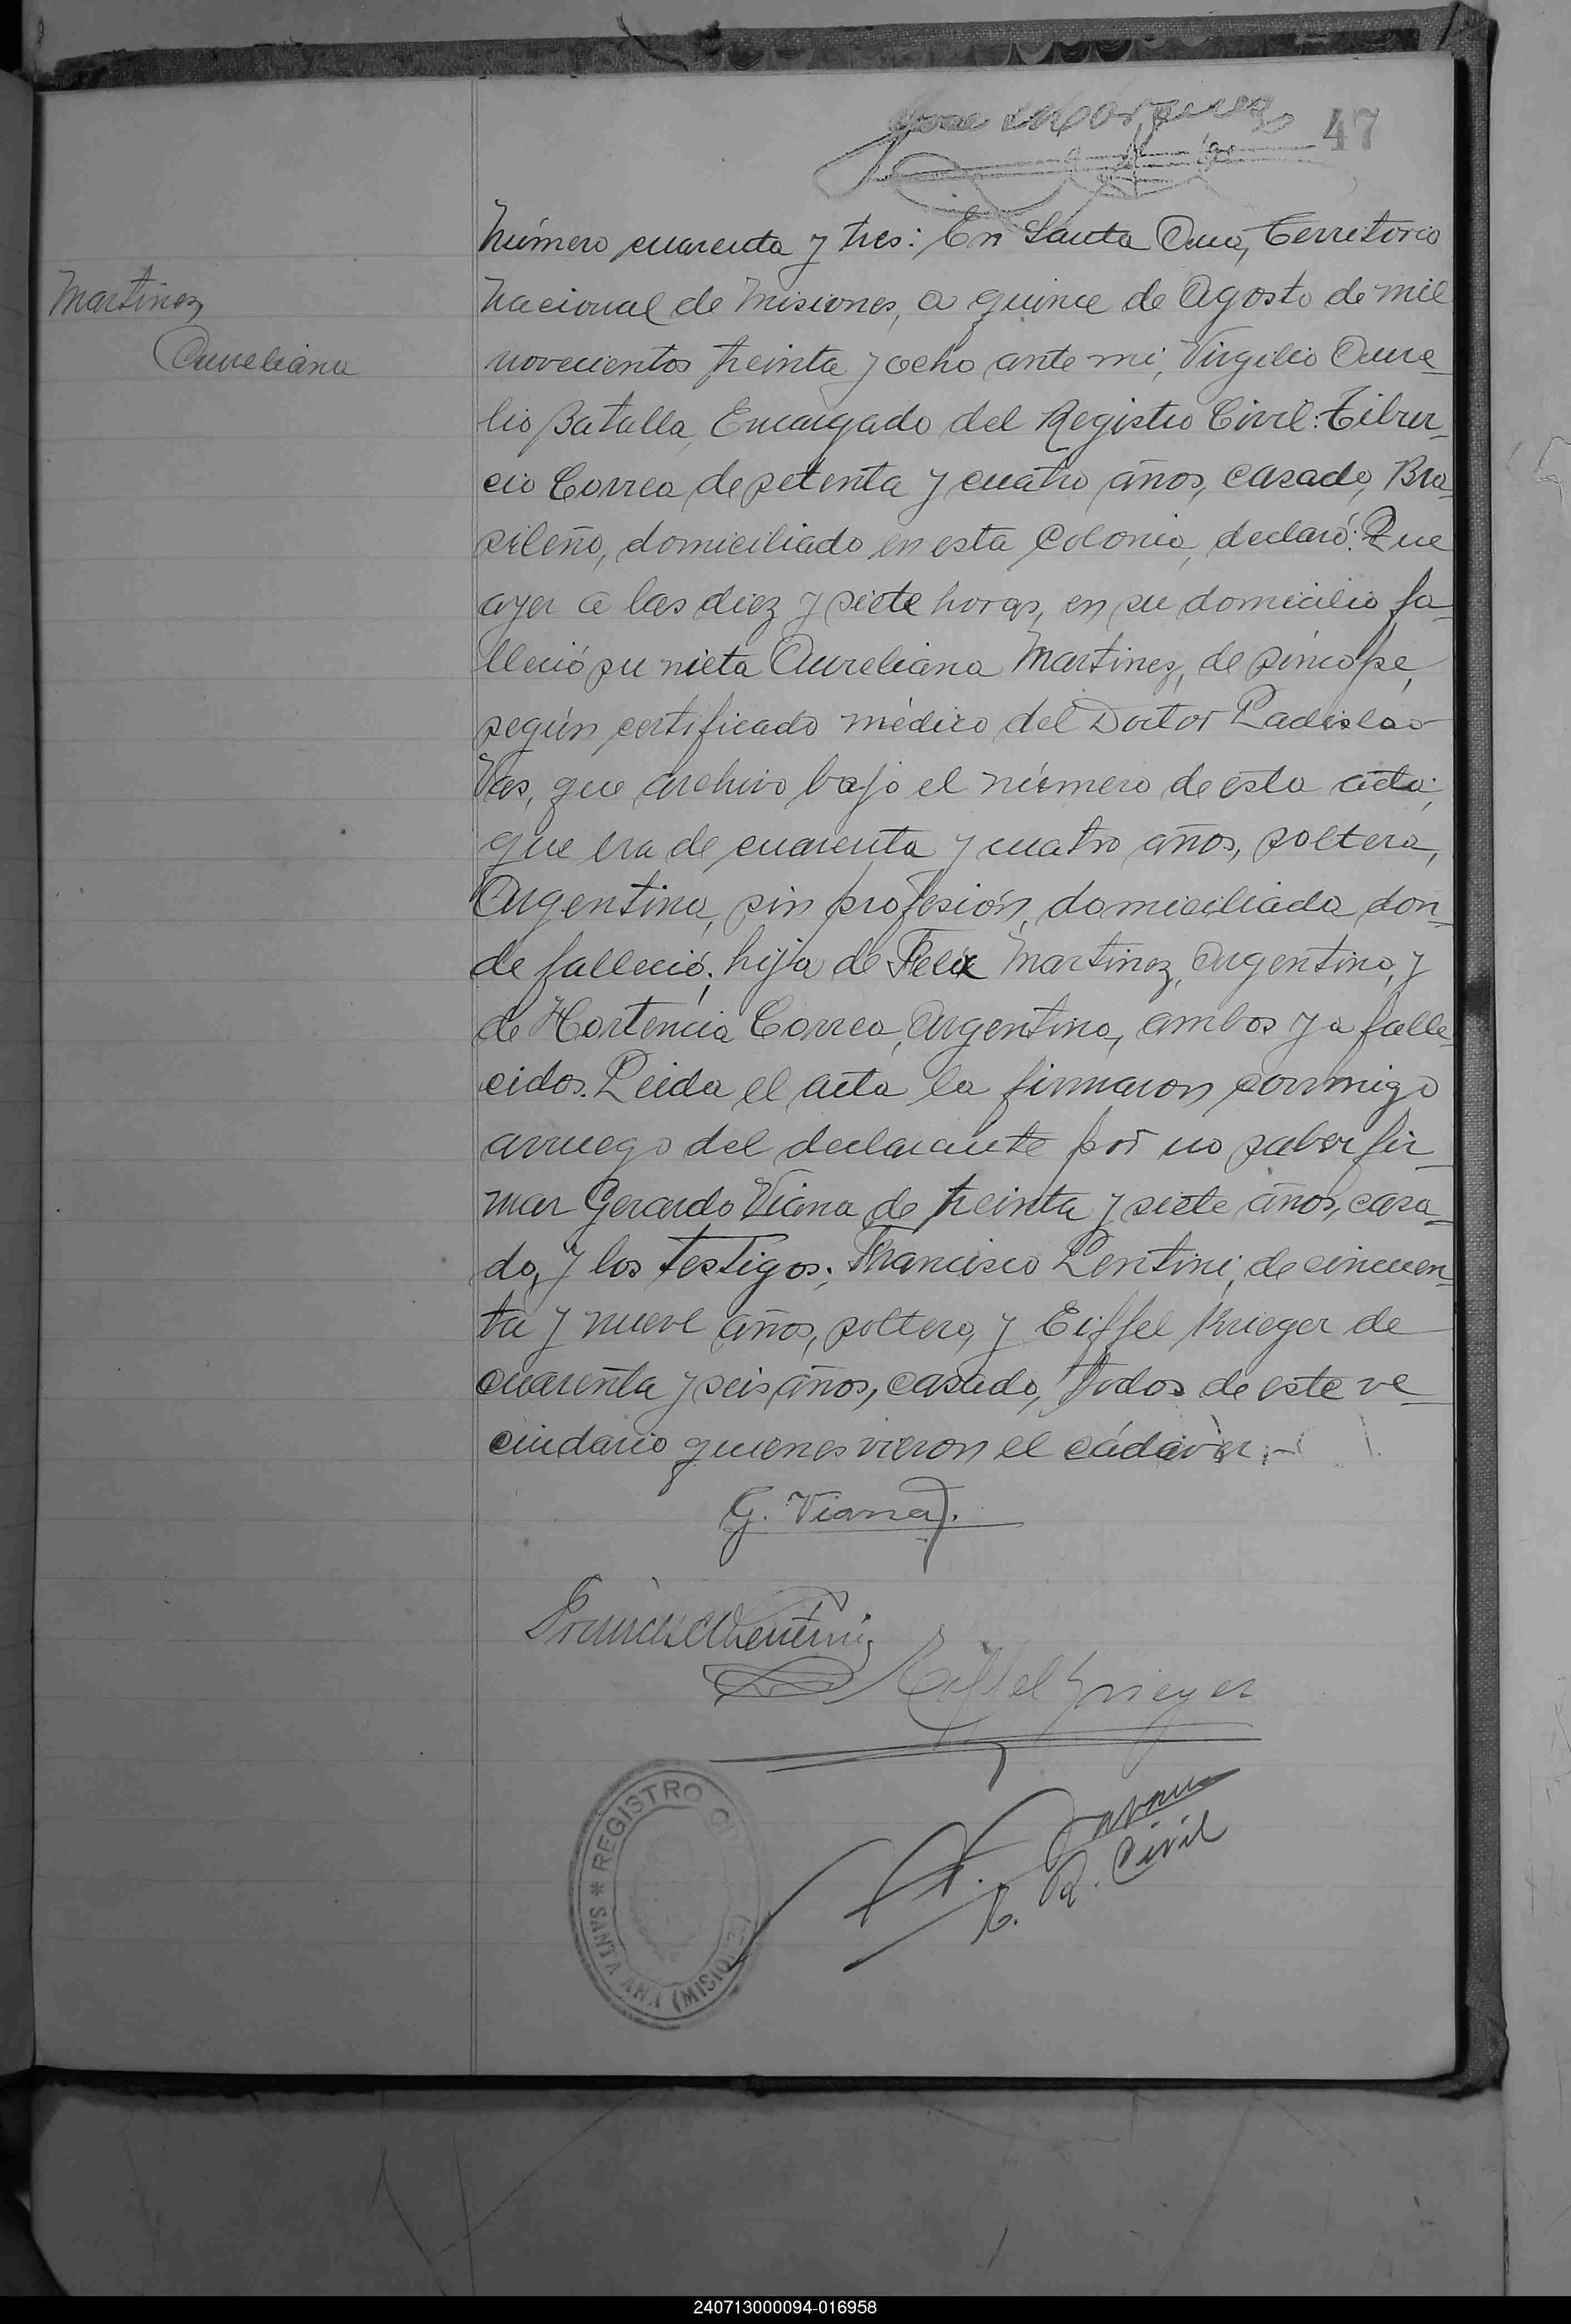 47
Martinez
Aureliana
Número cuarenta y tres: En Santa Ana, Territorio
Nacional de Misiones, a quince de Agosto de mil
novecientos treinta y ocho ante mi, Virgilio Aure-
lio Batalla, Encargado del Registro Civil: Tibur-
cio Correa de setenta y cuatro años, casado, Bra-
sileño, domiciliado en esta Colonia, declaró: Que
ayer a las diez y siete horas, en su domicilio fa-
lleció su nieta Aureliana Martinez, de síncope,
según certificado médico del Doctor Ladislao
Vas, que archivo bajo el número de esta acta;
que era de cuarenta y cuatro años, soltera,
Argentina, sin profesión, domiciliada don-
de falleció; hija de Felix Martinez, Argentino, y
de Hortencia Correa, Argentina, ambos ya falle-
cidos. Leida el acta la firmaron conmigo
arruego del declarante por no saber fir-
mar Gerardo Viana de treinta y siete años, casa-
do, y los testigos; Francisco Lentini, de cincuen-
ta y nueve años, soltero, y Eiffel Krieger de
cuarenta y seis años, casado, todos de este ve-
cindario quienes vieron el cádaver.-
G. Viana.
Francisco Lentini
Eiffel Krieger
E. R. Civil
* REGISTRO
SANTA ANA (MISIONES)
240713000094-016958